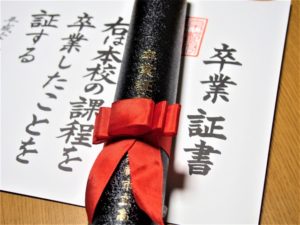 卒業証書
右は本校の課程を
卒業したことを
証する